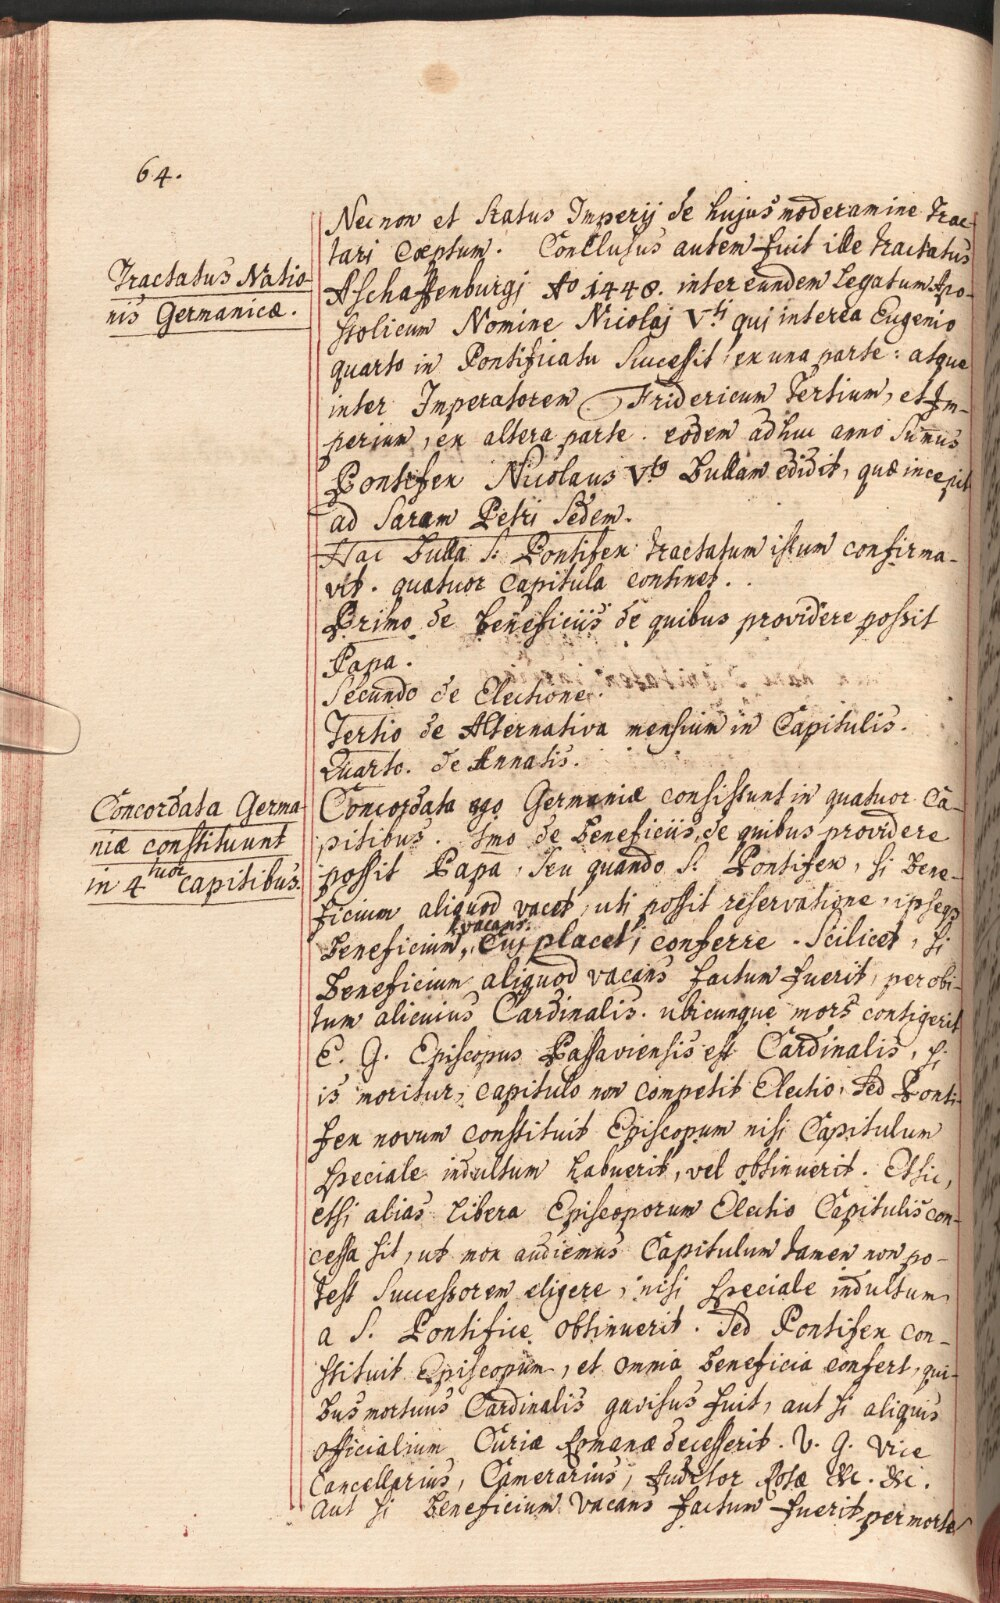 64.
Necnon et Status Imperij de hujus moderamine trac-
tari cœptum. Conclusus autem fuit ille tractatus
Tractatus Natio-
nis Germanicæ.
Aschaffenburgj Ao 1448. inter eundem Legatum Apo-
stolicum Nomine Nicolaj Vti quj interea Eugenio
quarto in Pontificatu Successit, ex una parte: atque
inter Imperatorem Fridericum Tertium, et Im-
perium, ex altera parte. eodem adhuc anno Sum̄us
Pontifex Nicolaus Vtq Bullam edidit, quæ incepit
ad Saram Petri Sedem.
Hac Bulla S. Pontifex tractatum istum confirma-
vit. quatuor Capitula continet.
Primo de Beneficiis de quibus providere possit
Papa.
Secundo de Electione.
Tertio de Alternativa mensium in Capitulis.
Quarto. de Annatis.
Concordata Germa-
niæ constituunt
in 4tuor capitibus.
Concordata ego Germaniæ consistunt in quatuor Ca-
pitibus. Imo de Beneficiis, de quibus providere
possit Papa, Seu quando S. Pontifex, si Bene-
ficium aliquod vacet, uti possit reservatione, ipseqz
vacans.
Beneficium, Cuj placet, conferre. Scilicet, si
Beneficium aliquod vacans factum fuerit, per obi-
tum alicuius Cardinalis. ubicunque mors contigerit
E. G. Episcopus Passaviensis est Cardinalis, si
is moritur, capitulo non competit Electio, Sed Ponti-
fex novum constituit Episcopum nisi Capitulum
speciale indultum habuerit, vel obtinuerit. Etsic,
etsi alias libera Episcoporum Electio Capitulis con-
cessa sit, ut mox audiemus Capitulum tamen non po-
test Successorem eligere, nisi speciale indultum
a S. Pontifice obtinuerit. Sed Pontifex con-
stituit Episcopum, et omnia Beneficia confert, qui-
bus mortuus Cardinalis gavisus fuit, aut si aliquis
officialium Curiæ Romanæ decesserit. V. G. Vice
Cancellarius, Camerarius, Auditor Rotæ &c. &c.
Aut si Beneficium vacans factum fuerit per morte